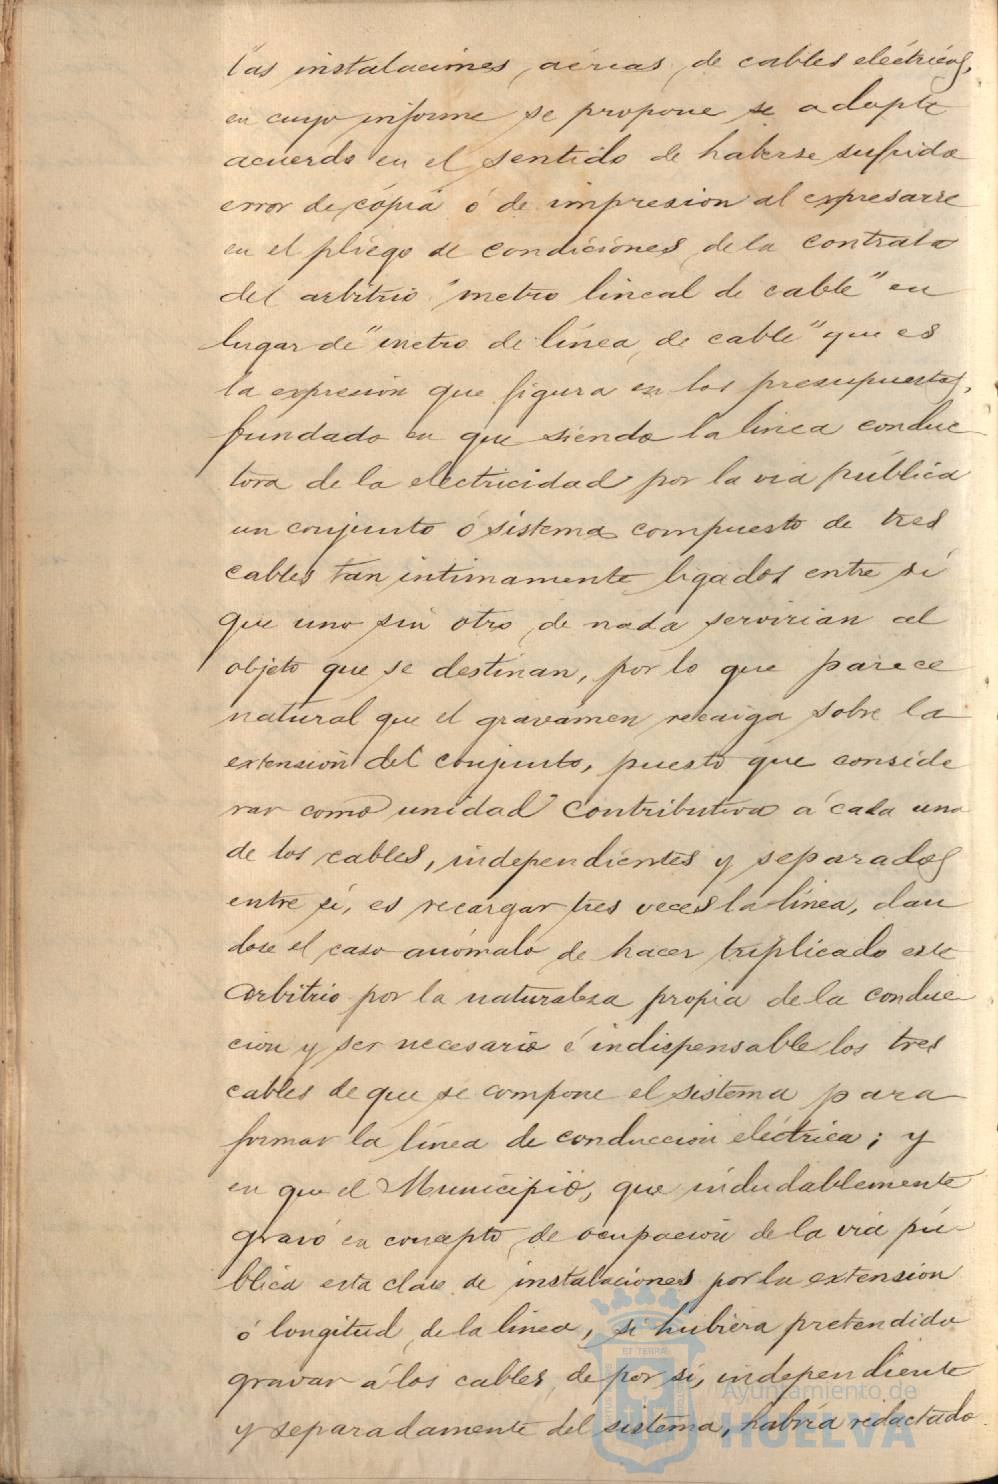 las instalaciones aéreas de cables eléctricos,
en cuyo informe se propone se adopte
acuerdo en el sentido de haberse sufrido
error de cópia ó de impresion al expresarse
en el pliégo de condiciónes de la contrata
del arbitrio "metro lineal de cable" en
lugar de "metro de línea de cable" que es
la expresion que figura en los presupuestos,
fundado en que siendo la linea conduc-
tora de la electricidad por la via pública
un conjunto ó sistema compuesto de tres
cables tan intimamente ligados entre sí
que uno sin otro de nada servirian al
objeto que se destinan, por lo que parece
natural que el gravámen recaiga sobre la
extensión del conjunto, puesto que conside
rar como unidad contributiva a cada uno
de los cables, independientes y separados
entre sí, es recargar tres veces la línea, dan
dose el caso anómalo de hacer triplicado este
arbitrio por la naturaleza propia de la conduc-
cion y ser necesario é indispensable los tres
cables de que se compone el sistema para
formar la línea de conduccion eléctrica; y
en que el Municipio, que indudablemente
gravó en concepto de ocupación de la via pú-
blica esta clase de instalaciones por la extension
ó longitud de la linea, si hubiera pretendido
gravar á los cables de por sí, independiente
y separadamente del sistema, habría redactado
Ayuntamiento de
HUELVA